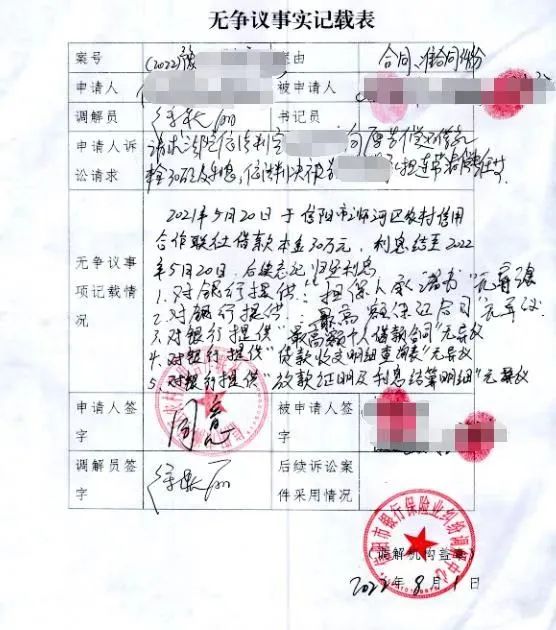 无争议事实记载表
案号 (2022)豫 案由 合同、准合同纠纷
申请人 被申请
调解员 书记员
申请人诉 请求法院依法判令 向原告偿还借款
讼请求 本金30万元及利息,依法判决被告 承担连带清偿责任
2021年5月20日于信阳市浉河区农村信用
合作联社借款本金30万元,利息结至2022
年5月20日,后续
无争议事 1.对银行提供:"担保人承诺书"无异议
项记载情 2.对银行提供:"最高额保证合同"无异议
况 3.对银行提供"最高额个人借款合同"无异议
4.对银行提供"贷款收支明细查询表"无异议
5.对银行提供"放款证明及利息结算明细"无异议
申请人签 被申请人签
字 字
调解员签 后续诉讼案
字 件采用情况
市银行保险业纠纷调解中心
(调解机构盖章)
2022年8月1日